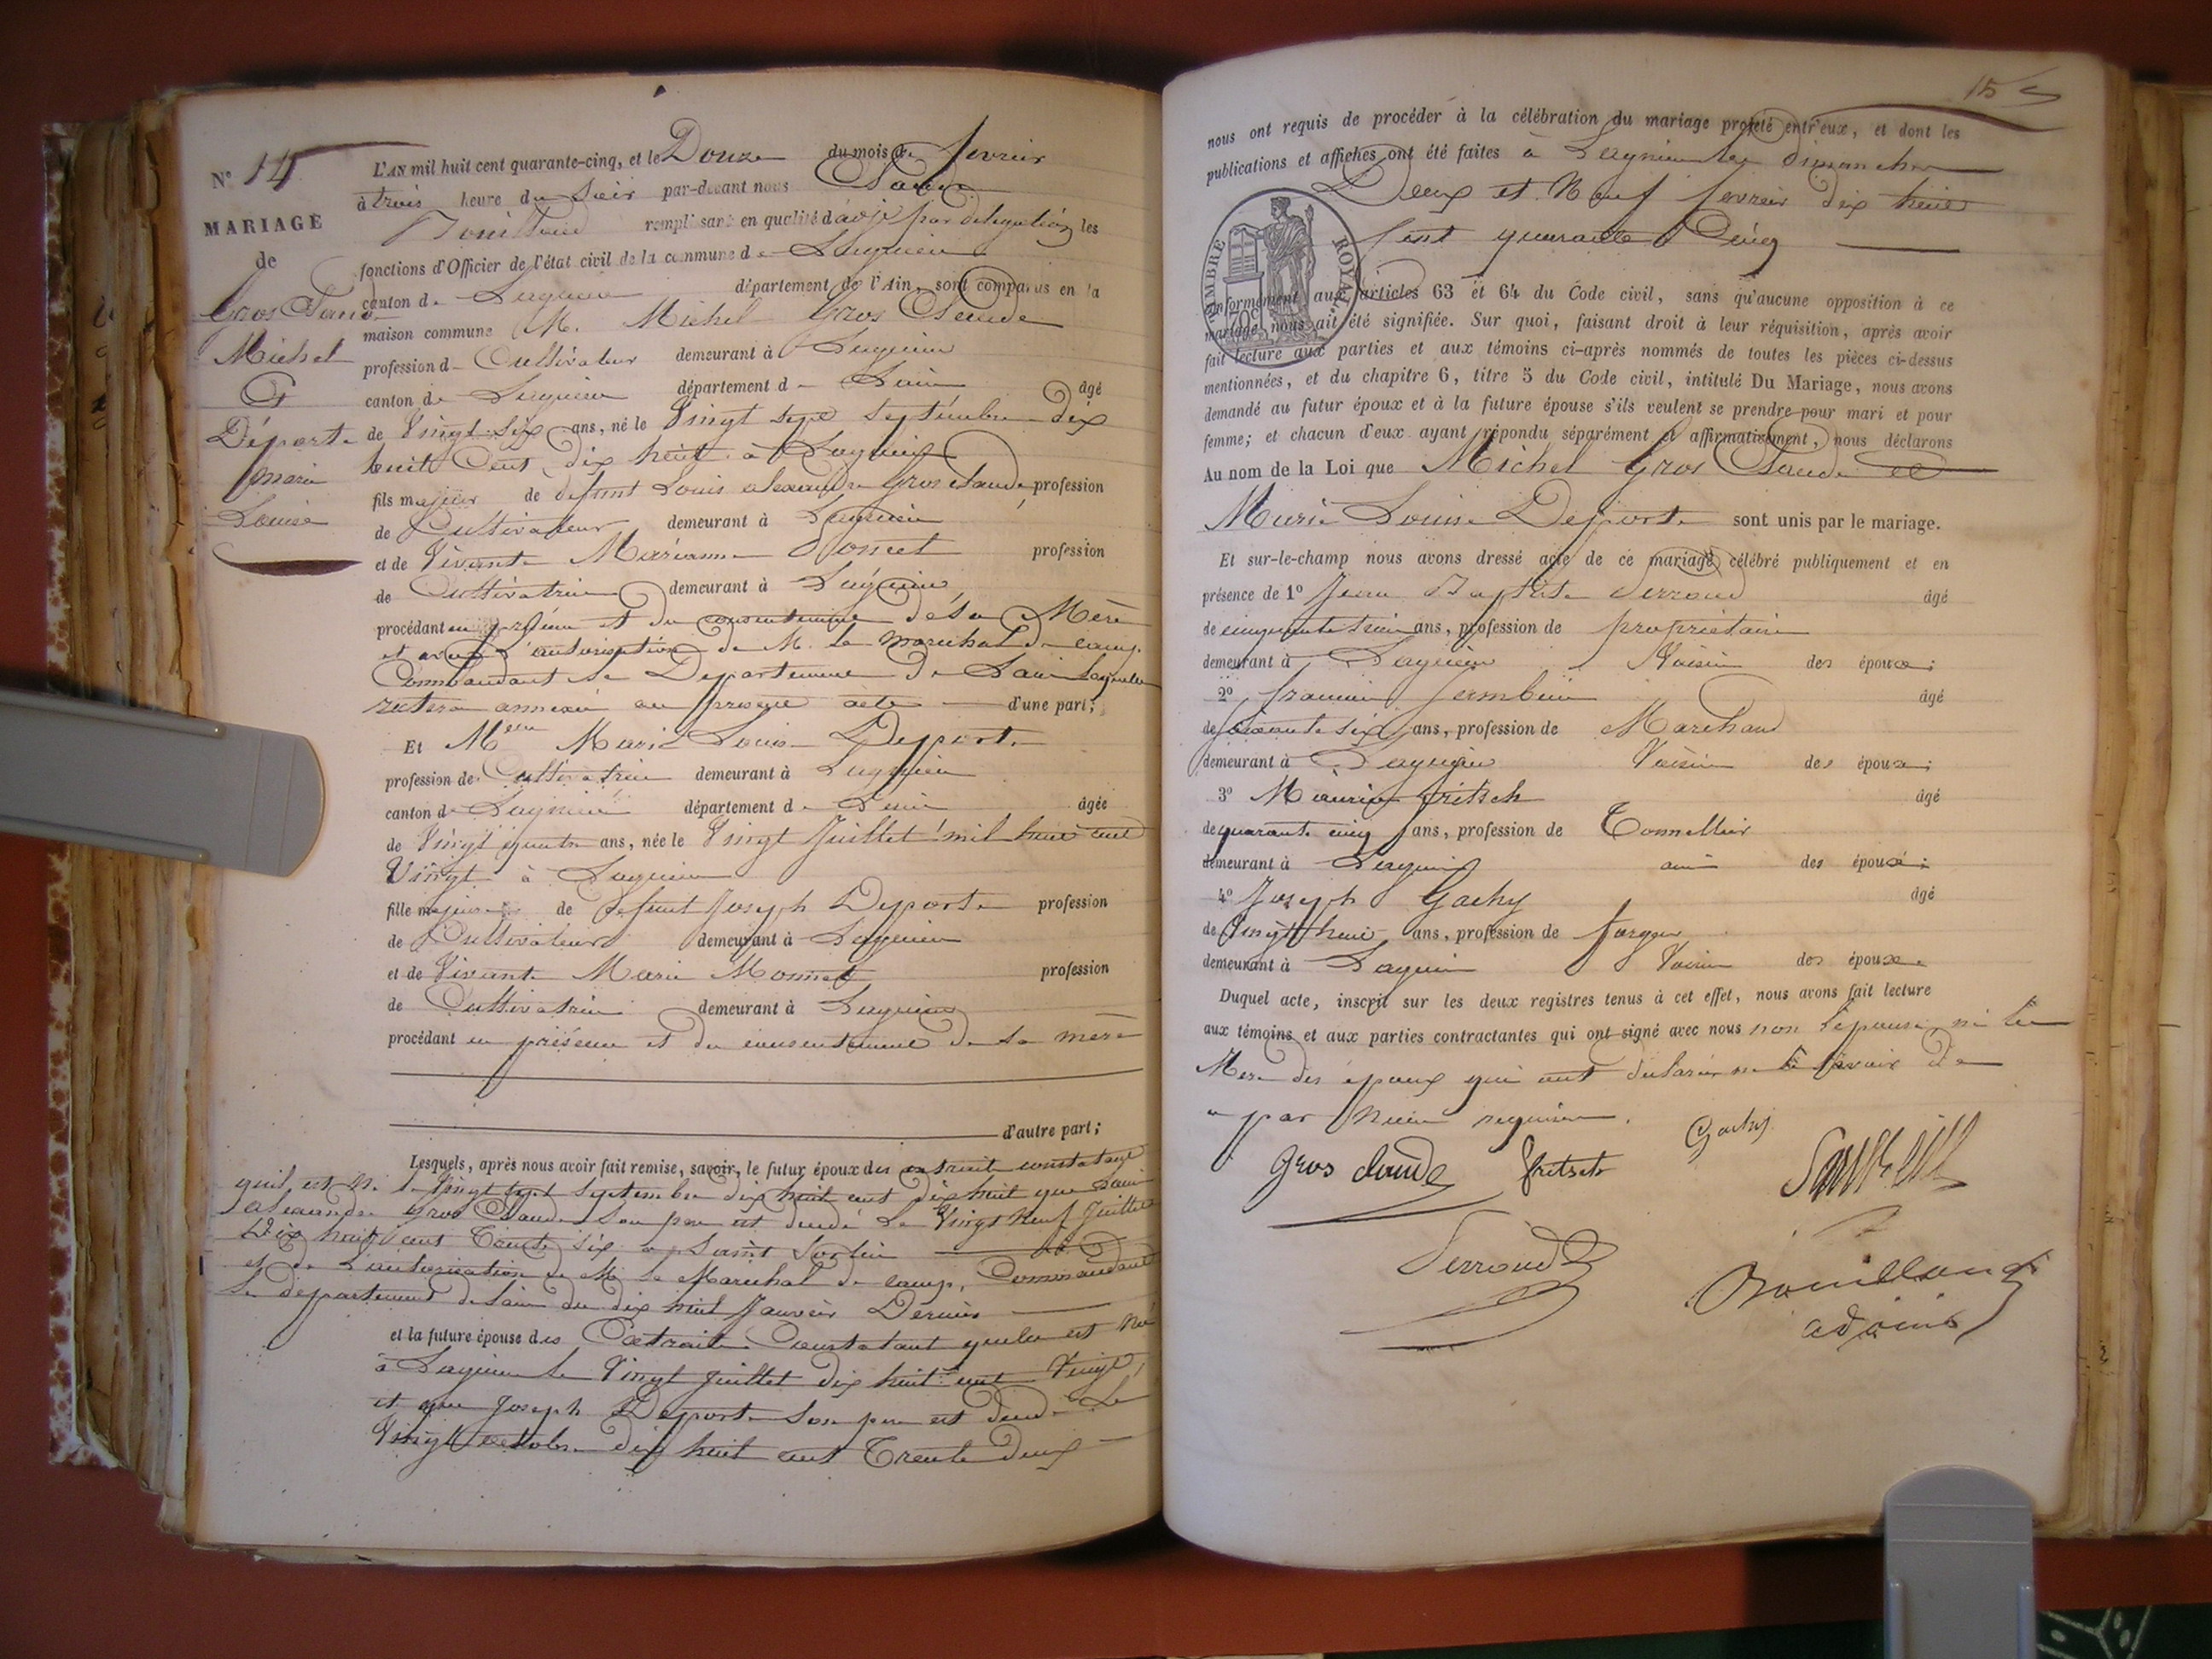 N° 14
MARIAGE
de
Gros Claude
Michel
Et
Déporte
Marie
Louise
L'AN mil huit cent quarante-cinq, et le Douze du mois de fevrier
à trois heure du Soir par-devant nous Claude
Bouilland remplissant en qualité d'adjt par delegation les
fonctions d'Officier de l'état civil de la commune de Lagnieu
canton de Lagnieu département de l'Ain, sont comparus en la
maison commune M. Michel Gros Claude
profession de Cultivateur demeurant à Lagnieu
canton de Lagnieu département de Lain âgé
de Vingt six ans, né le Vingt sept septembre dix
huit Cent dix huit à Lagnieu
fils majeur de defunt Louis alexandre Gros Claude profession
de Cultivateur demeurant à Lagnieu
et de Vivante Marianne profession
de Cultivatrice demeurant à Lagnieu
procédant en présence et du consentement de sa Mère
et avec l'autorisation de M. le marechal de camp
Commandant le Departement de Lain laquelle
restera annexée au present acte d'une part;
Et Melle Marie Louise Deporte
profession de Cultivatrice demeurant à Lagnieu
canton de Lagnieu département de Lain âgée
de Vingt quatre ans, née le Vingt Juillet mil huit cent
Vingt à Lagnieu
fille majeure de defunt Joseph Deporte profession
de Cultivateur demeurant à Lagnieu
et de Vivante Marie Monnet profession
de Cultivatrice demeurant à Lagnieu
procédant en présence et du consentement de sa mère
d'autre part;
Lesquels, après nous avoir fait remise, savoir, le futur époux des extrait constatant
quil est né le Vingt sept septembre dix huit cent dix huit que Louis
alexandre Gros Claude son pere est decedé le Vingt Neuf Juillet
Dix huit cent Trente six a Saint Sorlin
et de L'autorisation de M le Marechal de camp, Commandant
le departement de Lain du dix huit Janvier Dernier
et la future épouse des Extraits Constatant quelle est née
à Lagnieu le Vingt Juillet dix huit cent Vingt,
et que Joseph Deporte son pere est decedé Le
Vingt octobre dix huit cent Trente deux
15
nous ont requis de procéder à la célébration du mariage projeté entr'eux, et dont les
publications et affiches ont été faites à Lagnieu les dimanches
Deux et Neuf fevrier dix huit
Cent quarante Cinq
TIMBRE ROYAL
70c
conformément aux articles 63 et 64 du Code civil, sans qu'aucune opposition à ce
mariage nous ait été signifiée. Sur quoi, faisant droit à leur réquisition, après avoir
fait lecture aux parties et aux témoins ci-après nommés de toutes les pièces ci-dessus
mentionnées, et du chapitre 6, titre 5 du Code civil, intitulé Du Mariage, nous avons
demandé au futur époux et à la future épouse s'ils veulent se prendre pour mari et pour
femme; et chacun d'eux ayant répondu séparément et affirmativement, nous déclarons
Au nom de la Loi que Michel Gros Claude et
Marie Louise Deporte sont unis par le mariage.
Et sur-le-champ nous avons dressé acte de ce mariage célébré publiquement et en
présence de 1° Jean Baptiste Serroud âgé
de cinquante trois ans, profession de propriétaire
demeurant à Lagnieu Voisin des époux;
2° francois âgé
de soixante six ans, profession de Marchand
demeurant à Lagnieu Voisin des époux;
3° Maurice fritsch âgé
de quarante cinq ans, profession de Tonnellier
demeurant à Lagnieu ami des époux;
4° Joseph Gachy âgé
de Vingt huit ans, profession de
demeurant à Lagnieu Voisin des époux.
Duquel acte, inscrit sur les deux registres tenus à cet effet, nous avons fait lecture
aux témoins et aux parties contractantes qui ont signé avec nous non Lepouse ni la
Mere des époux qui ont declarée ne le savoir de
ce par nous requises.
Gachy
Gros claude fritsch
Serroud
Bouilland
adjoint